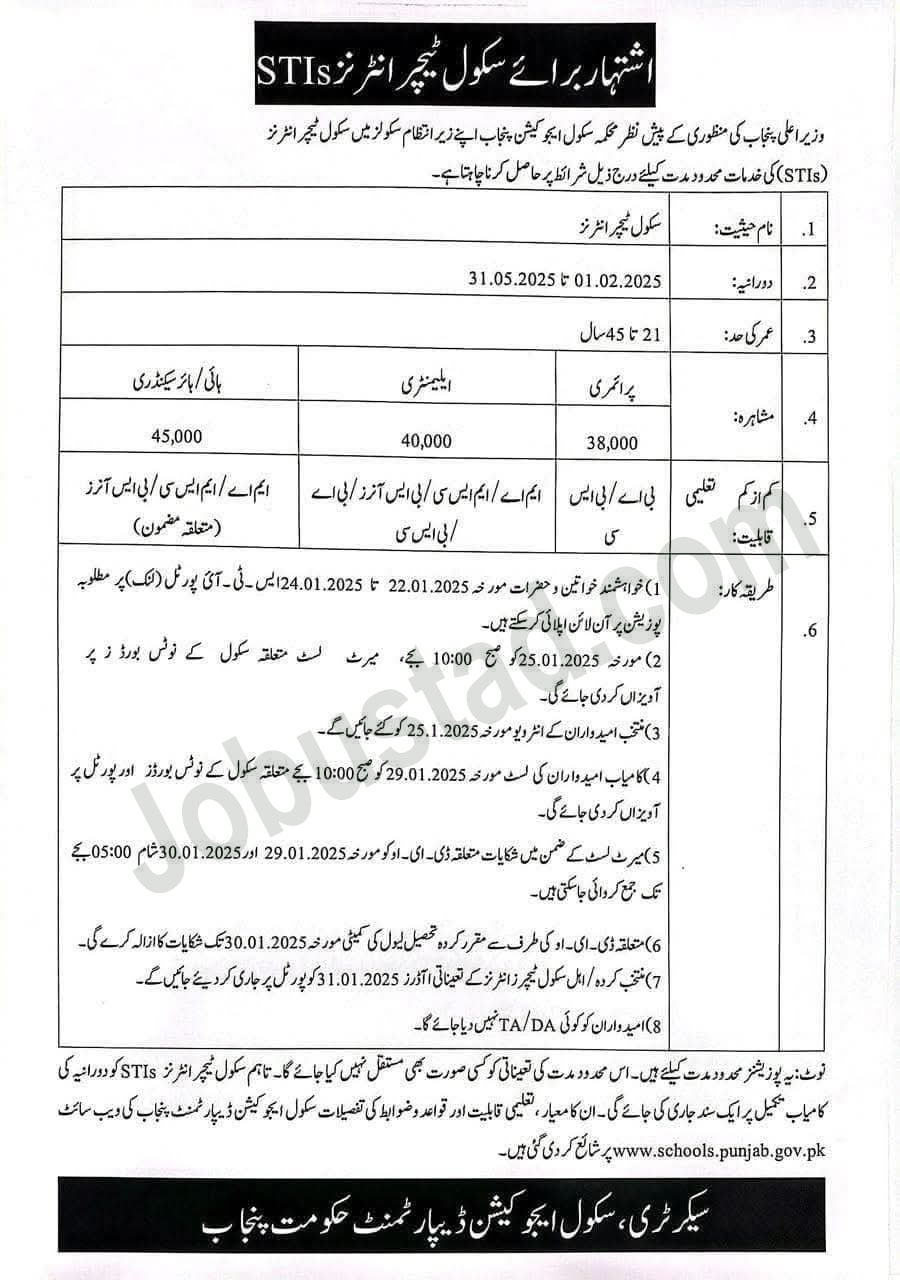 اشتہار برائے سکول ٹیچر انٹرنز STIs
وزیر اعلی پنجاب کی منظوری کے پیش نظر محکمہ سکول ایجوکیشن پنجاب اپنے زیر انتظام سکولز میں سکول ٹیچر انٹرنز
(STIs) کی خدمات محدود مدت کیلئے درج ذیل شرائط پر حاصل کرنا چاہتا ہے۔
1. نام حیثیت: سکول ٹیچر انٹرنز
2. دورانیہ: 01.02.2025 تا 31.05.2025
3. عمر کی حد: 21 تا 45 سال
4. مشاہرہ:
پرائمری ایلیمنٹری ہائی/ہائر سیکنڈری
38,000 40,000 45,000
5. کم از کم تعلیمی قابلیت:
بی اے/بی ایس ایم اے/ایم ایس سی/بی ایس آنرز/بی اے ایم اے/ایم ایس سی/بی ایس آنرز
سی /بی ایس سی (متعلقہ مضمون)
6. طریقہ کار:
1) خواہشمند خواتین و حضرات مورخہ 22.01.2025 تا 24.01.2025 ایس۔ٹی۔آئی پورٹل (لنک) پر مطلوبہ
پوزیشن پر آن لائن اپلائی کر سکتے ہیں۔
2) مورخہ 25.01.2025 کو صبح 10:00 بجے، میرٹ لسٹ متعلقہ سکول کے نوٹس بورڈز پر
آویزاں کر دی جائے گی۔
3) منتخب امیدواران کے انٹرویو مورخہ 25.1.2025 کو کئے جائیں گے۔
4) کامیاب امیدواران کی لسٹ مورخہ 29.01.2025 کو صبح 10:00 بجے متعلقہ سکول کے نوٹس بورڈز اور پورٹل پر
آویزاں کر دی جائے گی۔
5) میرٹ لسٹ کے ضمن میں شکایات متعلقہ ڈی۔ای۔او کو مورخہ 29.01.2025 اور 30.01.2025 شام 05:00 بجے
تک جمع کروائی جا سکتی ہیں۔
6) متعلقہ ڈی۔ای۔او کی طرف سے مقرر کردہ تحصیل لیول کی کمیٹی مورخہ 30.01.2025 تک شکایات کا ازالہ کرے گی۔
7) منتخب کردہ/اہل سکول ٹیچرز انٹرنز کے تعیناتی آآڈرز 31.01.2025 کو پورٹل پر جاری کر دیئے جائیں گے۔
8) امیدواران کو کوئی TA/DA نہیں دیا جائے گا۔
نوٹ: یہ پوزیشنز محدود مدت کیلئے ہیں۔ اس محدود مدت کی تعیناتی کو کسی صورت بھی مستقل نہیں کیا جائے گا۔ تاہم سکول ٹیچر انٹرنز STIs کو دورانیہ کی
کامیاب تکمیل پر ایک سند جاری کی جائے گی۔ ان کا معیار، تعلیمی قابلیت اور قواعد و ضوابط کی تفصیلات سکول ایجوکیشن ڈیپارٹمنٹ پنجاب کی ویب سائٹ
www.schools.punjab.gov.pk پر شائع کر دی گئی ہیں۔
سیکرٹری، سکول ایجوکیشن ڈیپارٹمنٹ حکومت پنجاب
Jobustad.com